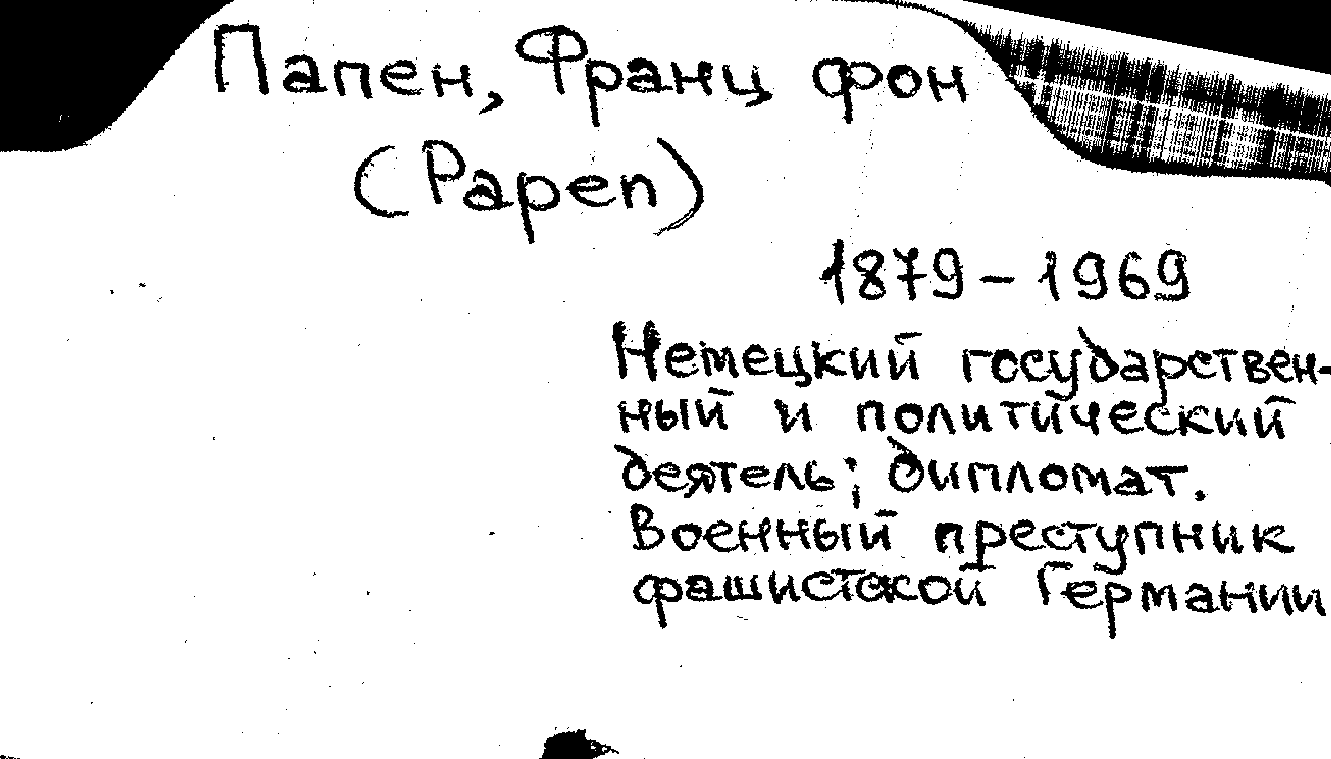 Папен, Франц фон
(Papen)
1879 – 1969
Немецкий государствен-
ный и политический
деятель; дипломат.
Военный преступник
фашистской Германии